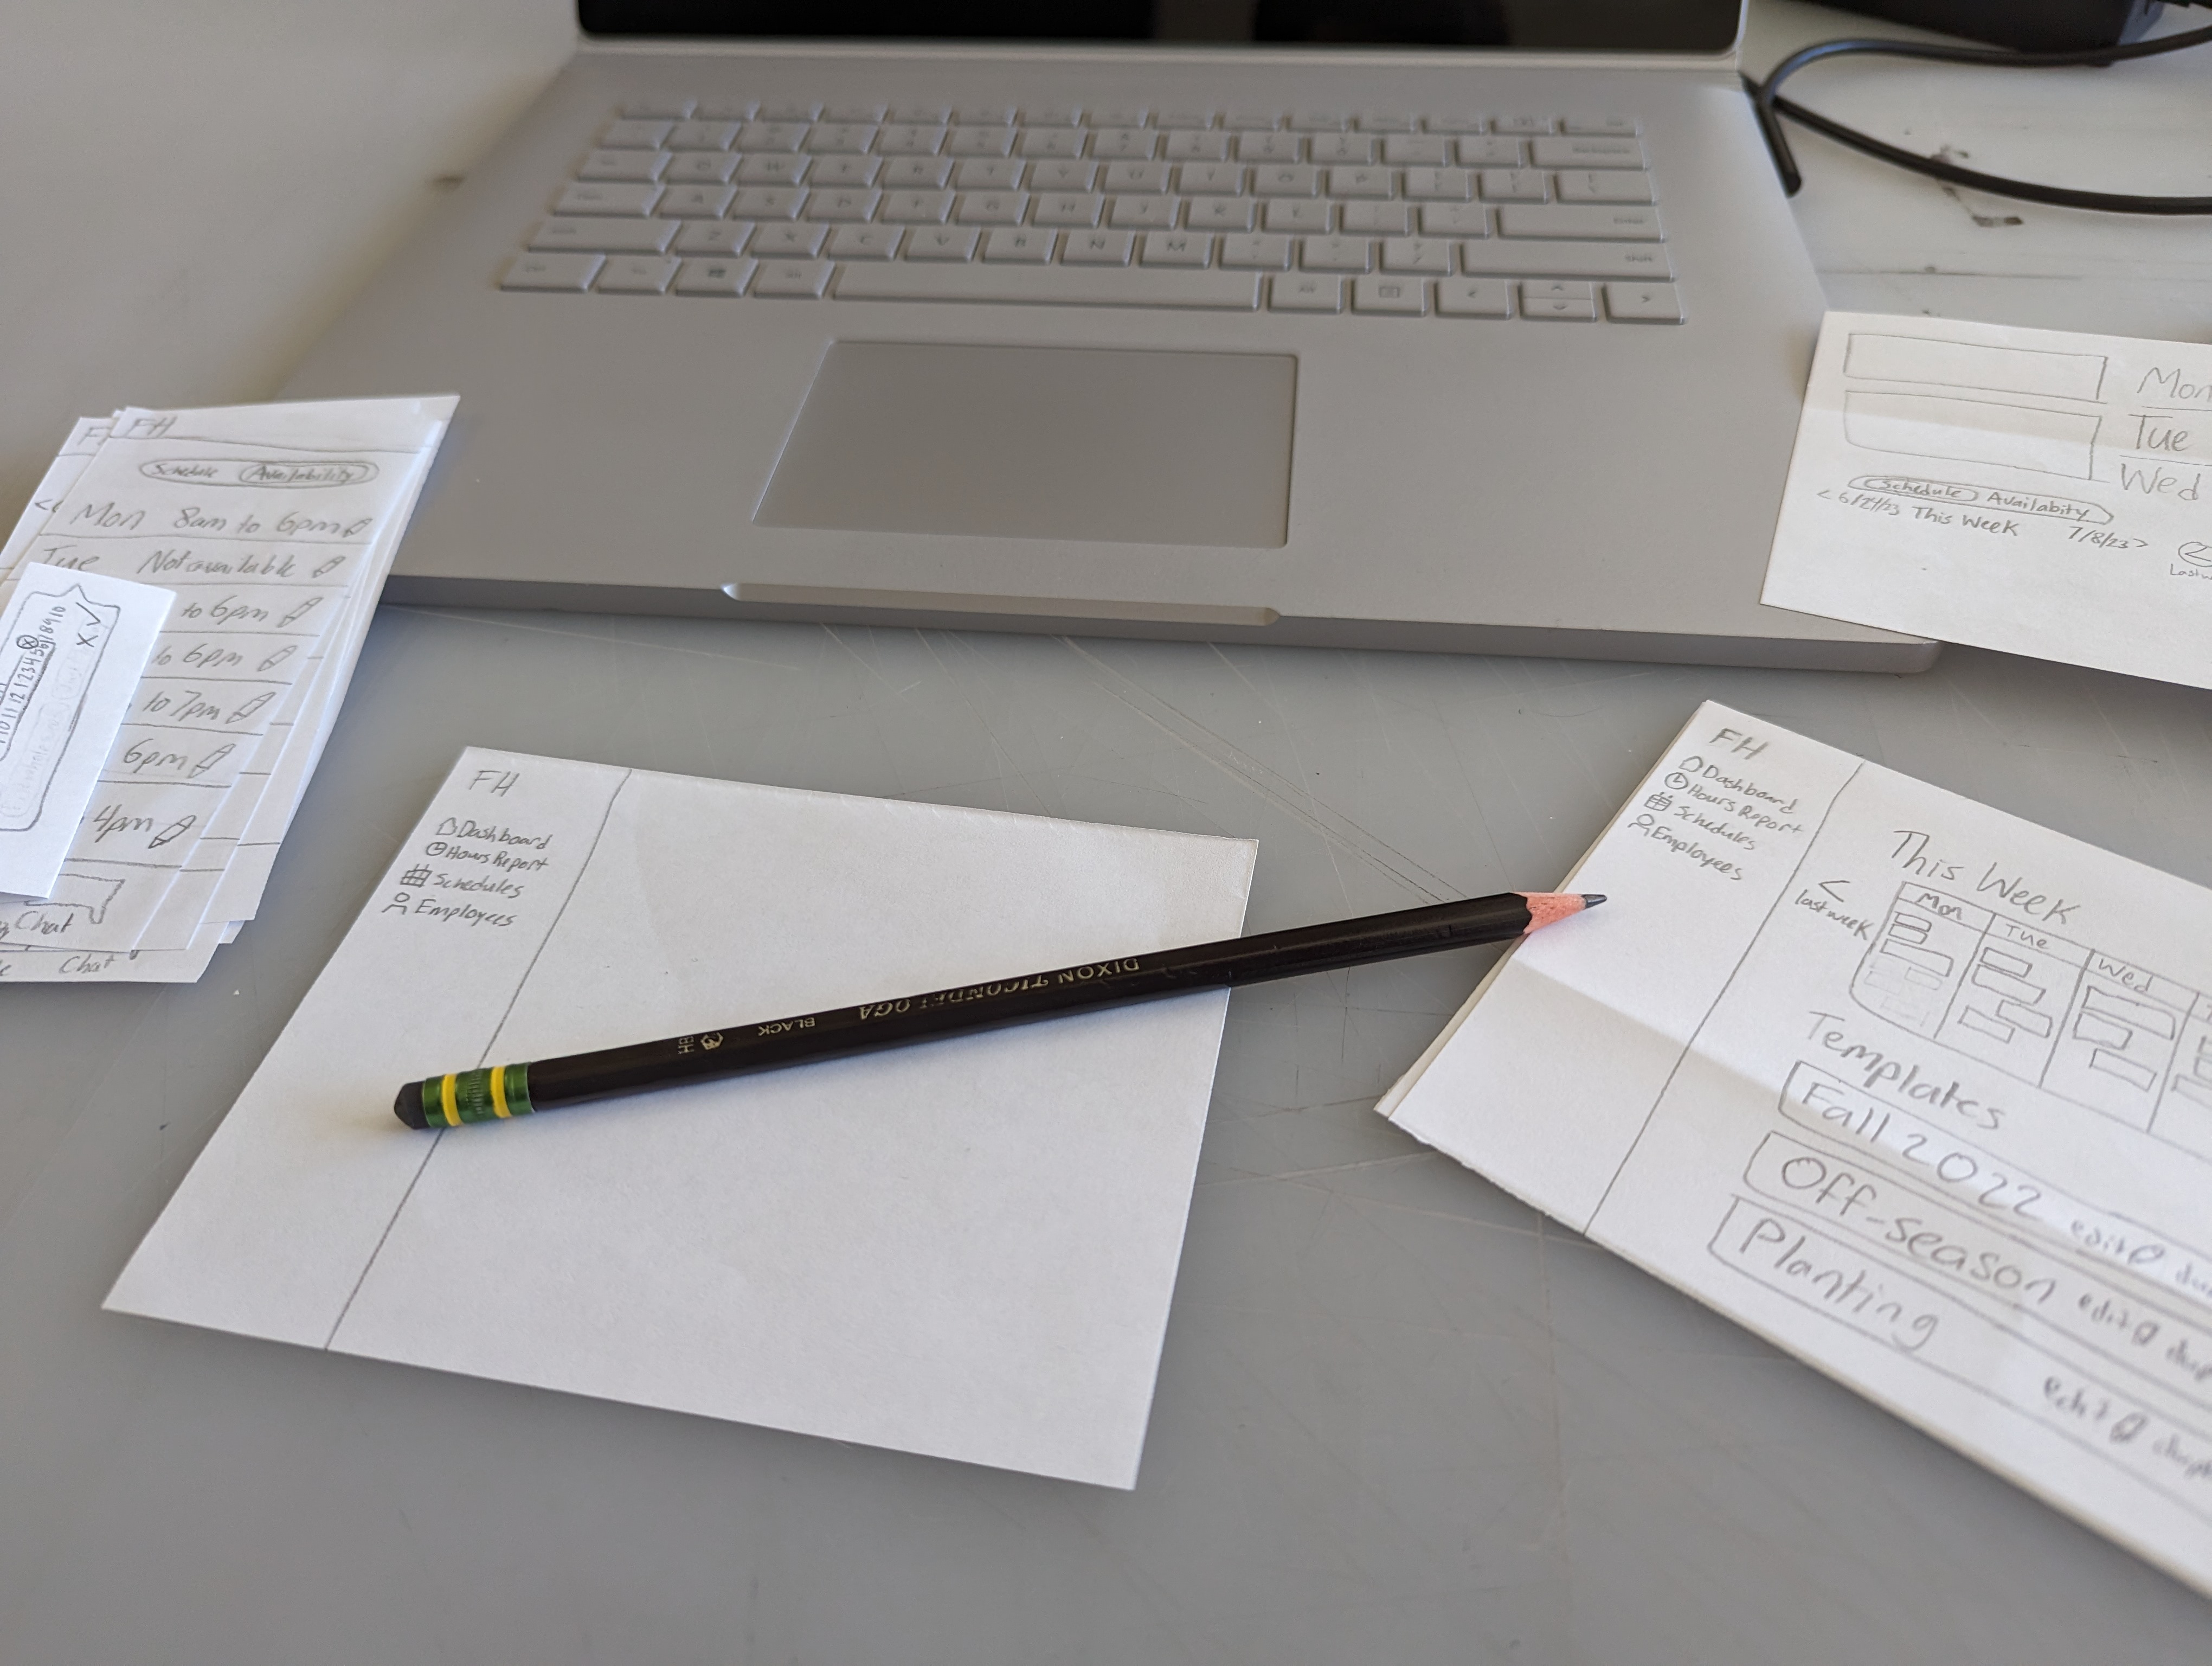 FH
Schedule Availability
Mon 8am to 6pm
Tue Not available
to 6pm
to 6pm
to 7pm
6pm
4pm
Chat
Chat
10 11 12 1 2 3 4 5 6 7 8 9 10
X
Mon
Tue
Wed
Schedule Availabity
< 6/24/23 This Week 7/8/23 >
FH
Dashboard
Hours Report
Schedules
Employees
DIXON TICONDEROGA
BLACK
HB
FH
Dashboard
Hours Report
Schedules
Employees
This Week
<
last week
Mon Tue Wed
Templates
Fall 2022 edit
Off-season edit
Planting edit